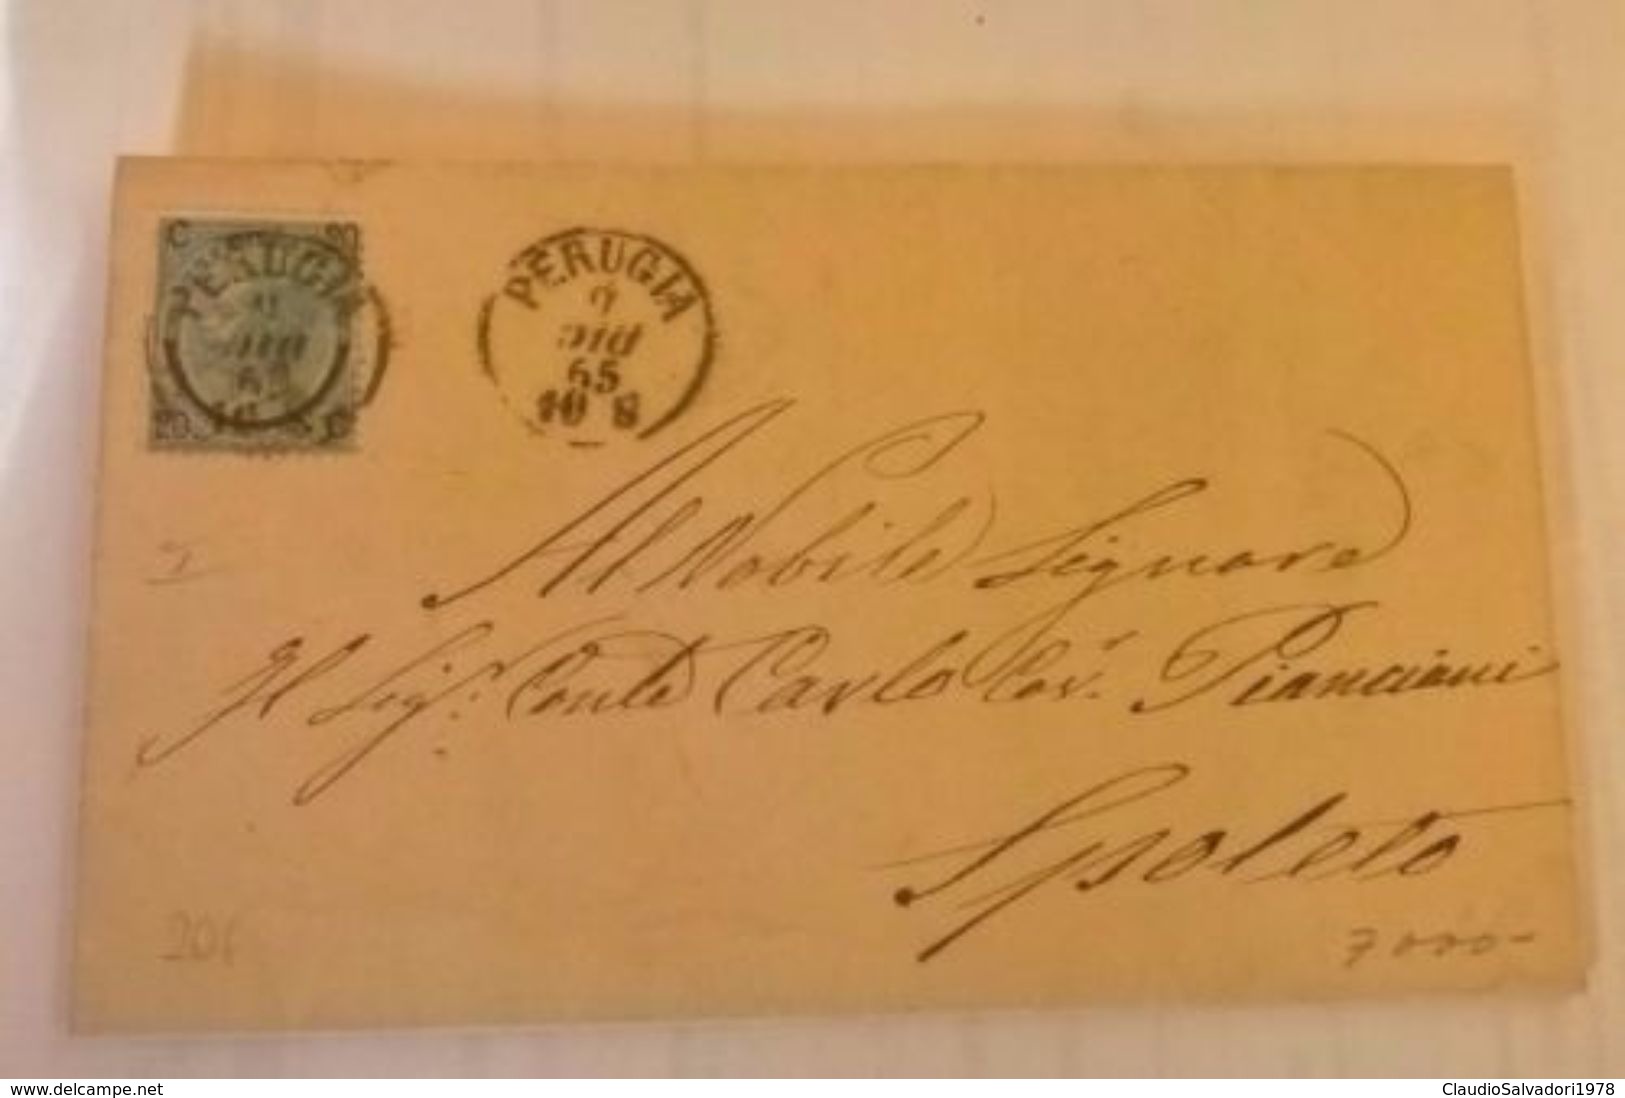 C 20
PERUGIA
65
20 C
PERUGIA
DIC
65
10 S
Al Nobile Signore
Il Sig.r Conte Carlo Cav.r Pianciani
Spoleto
7000-
www.delcampe.net
ClaudioSalvadori1978